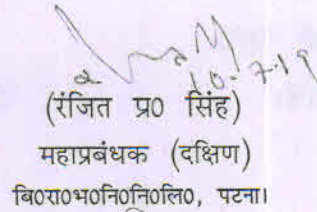 10.7.19
(रंजित प्र0 सिंह)
महाप्रबंधक (दक्षिण)
बि0रा0भ0नि0नि0लि0, पटना।